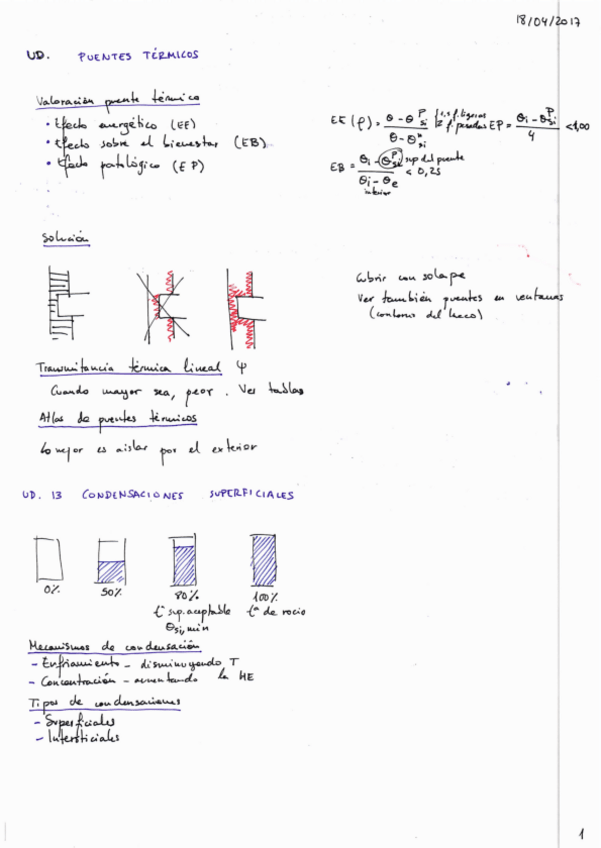 18/04/2017
UD. PUENTES TÉRMICOS
Valoración puente térmico
• Efecto energético (EE)
• Efecto sobre el bienestar (EB)
• Efecto patológico (EP)
EP = θi - θsi^P / 4 < 1,00
EB = θi - θsi^P / θi - θe < 0,25
sup del puente
interior
Solución
Cubrir con solape
Ver también puentes en ventanas
(contorno del hueco)
Transmitancia térmica lineal ψ
Cuando mayor sea, peor. Ver tablas
Atlas de puentes térmicos
Lo mejor es aislar por el exterior
UD. 13 CONDENSACIONES SUPERFICIALES
0% 50% 80% 100%
tª sup. aceptable tª de rocio
θsi, min
Mecanismos de condensación
- Enfriamiento - disminuyendo T
- Concentración - aumentando la HE
Tipos de condensaciones
- Superficiales
- Intersticiales
1